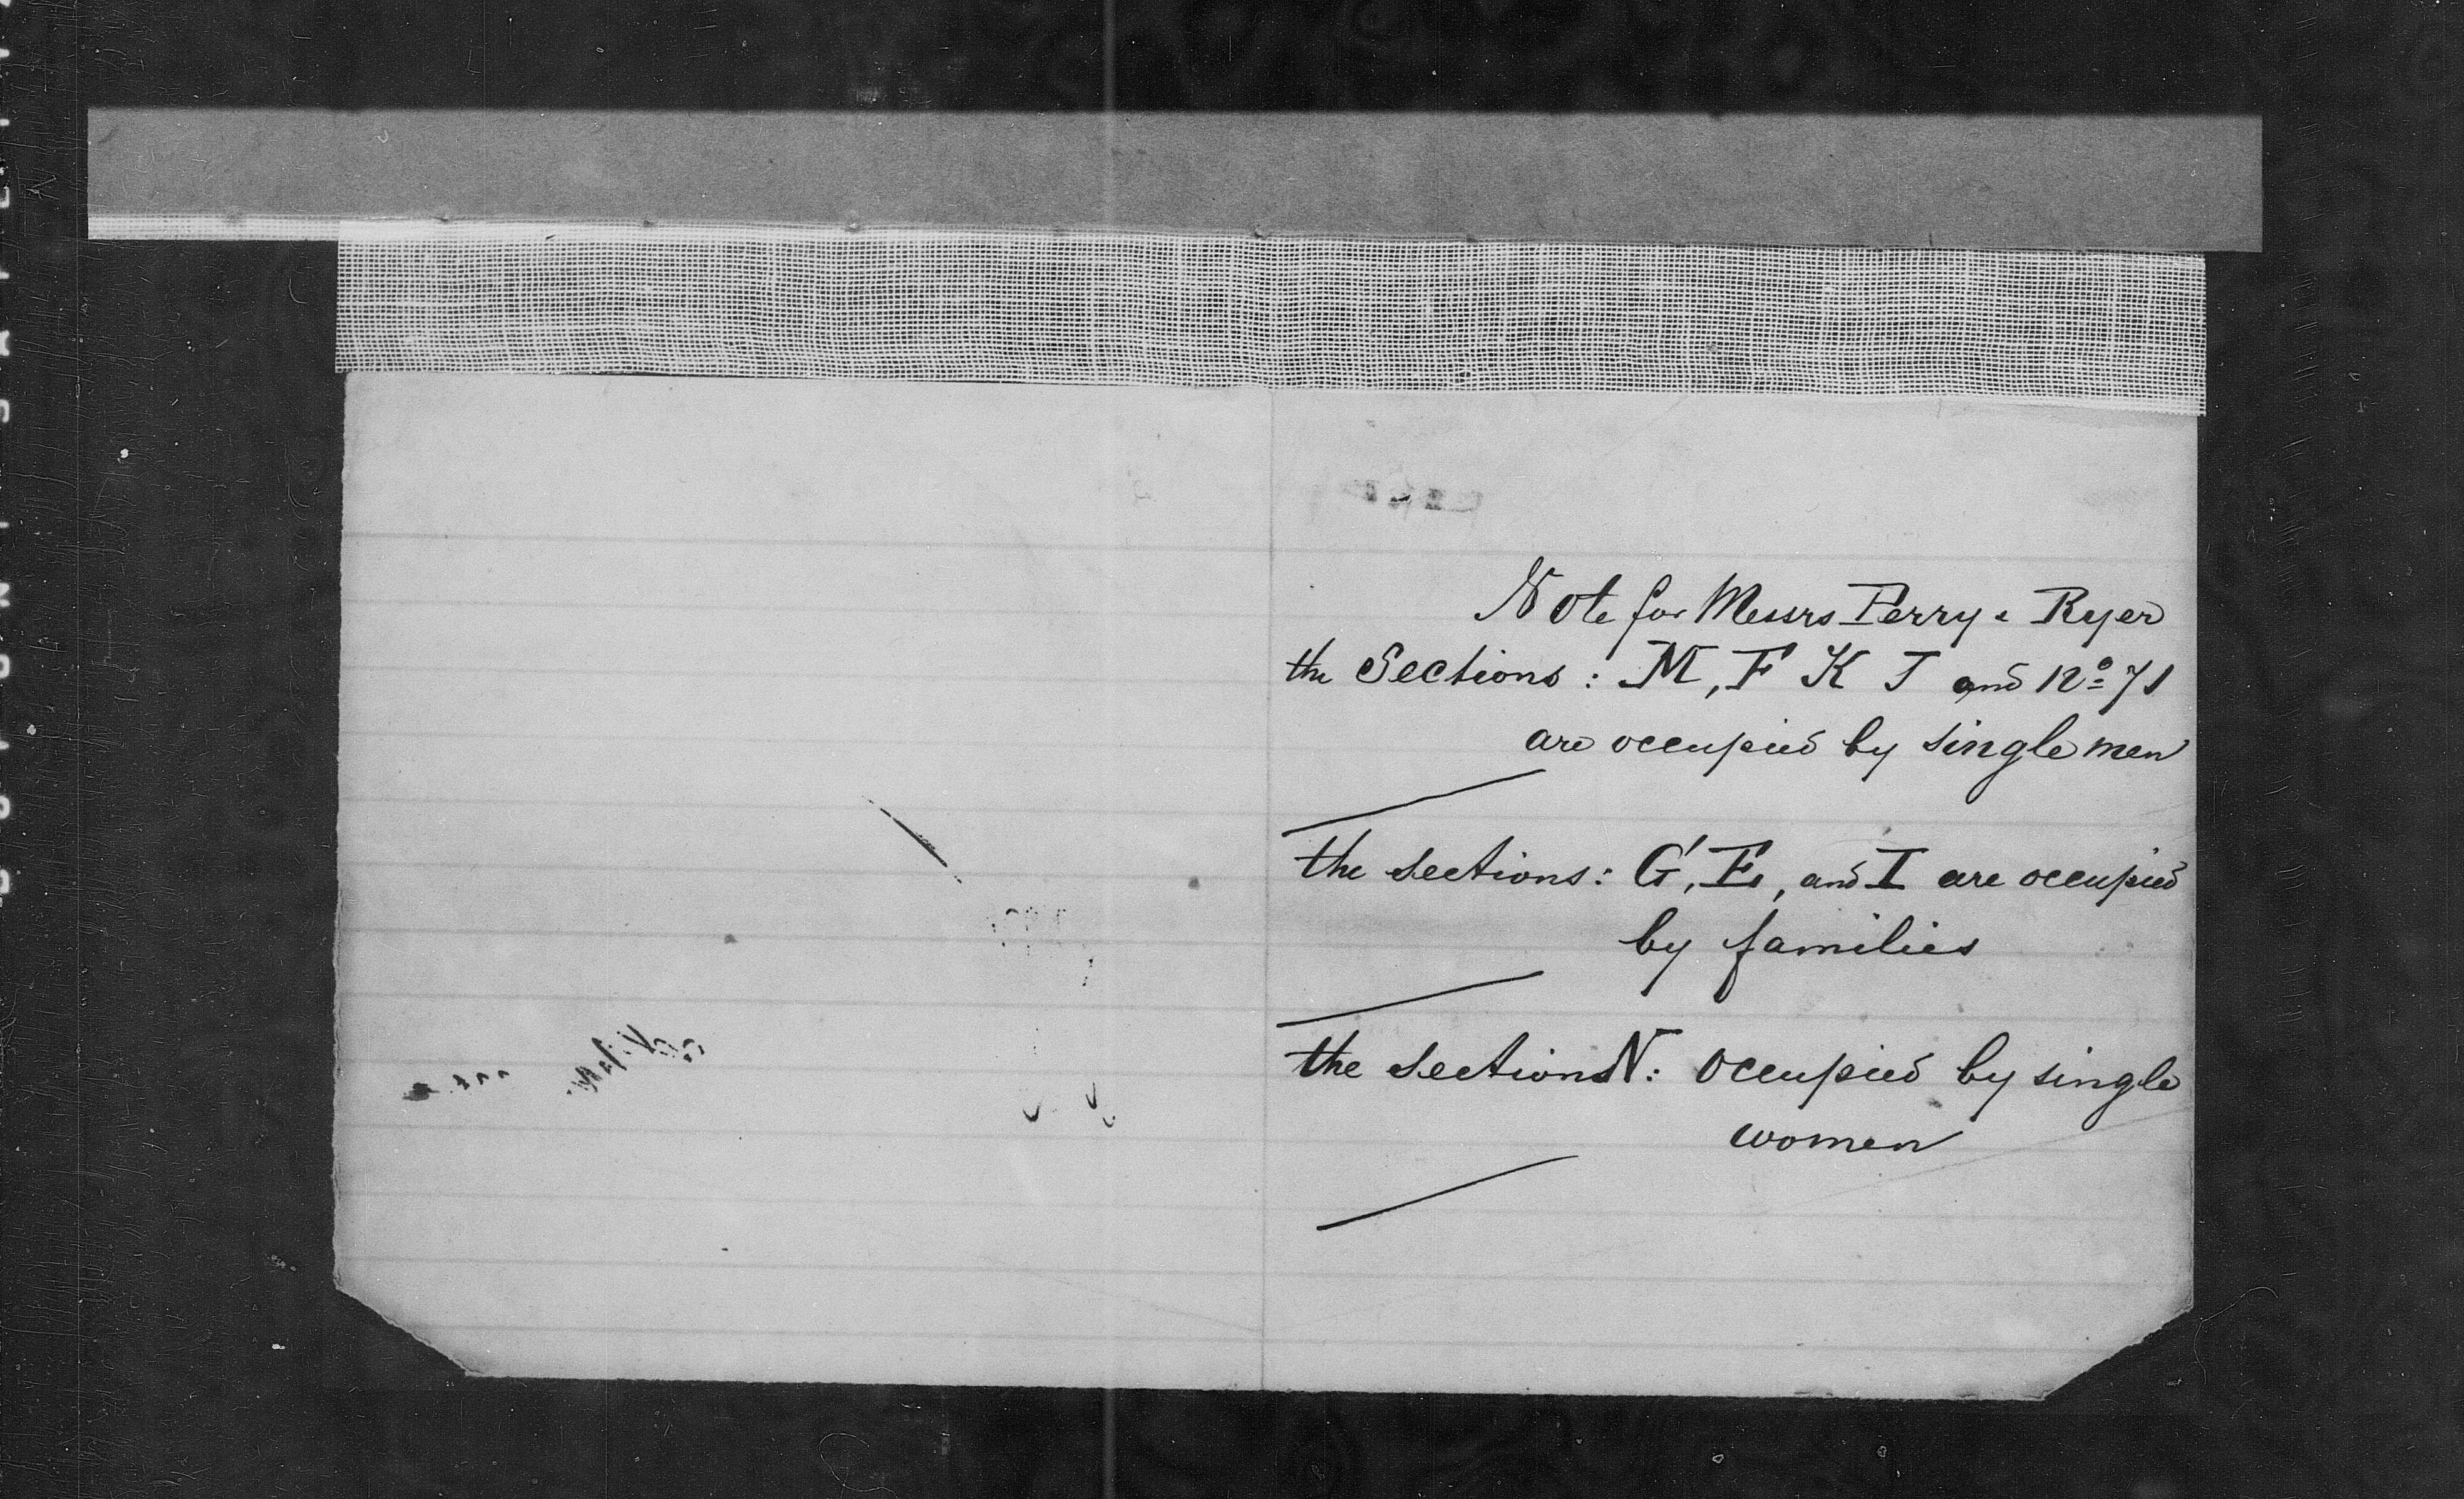 Note for Messrs Perry & Ryer
the Sections : M, F K J and No 71
are occupied by single men
the sections : G, E, and I are occupied
by families
the sections N : occupied by single
women